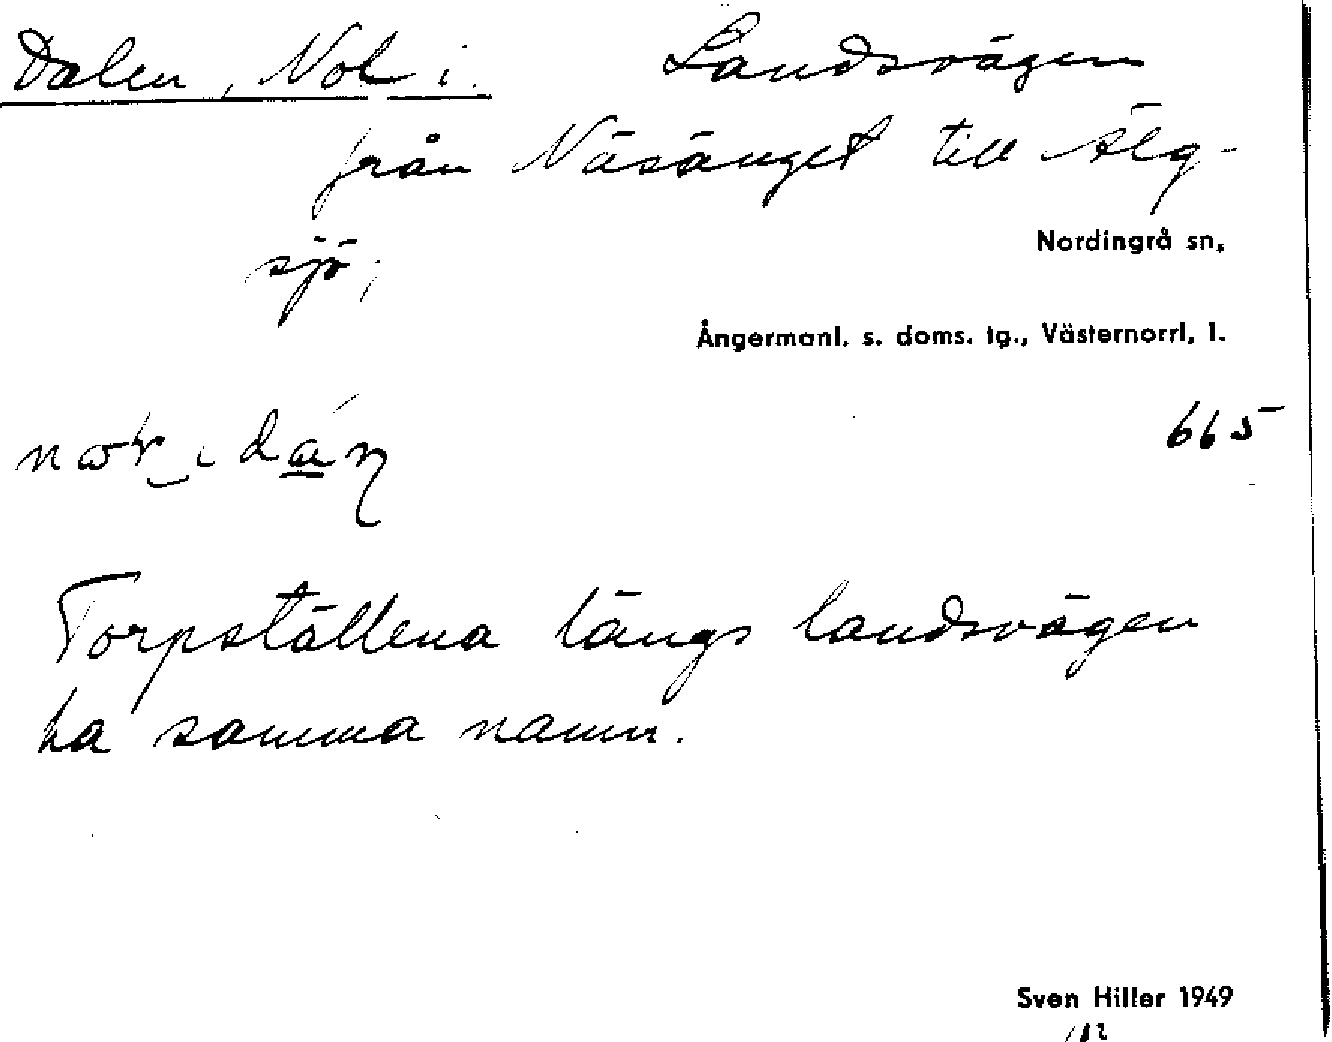 Dalen, Nol i. Landsvägen
från Näsänget till Älg-
sjö;
Nordingrå sn,
Ångermanl. s. doms. tg., Västernorrl. l.
665
Torpställena längs landsvägen
ha samma namn.
Sven Hiller 1949